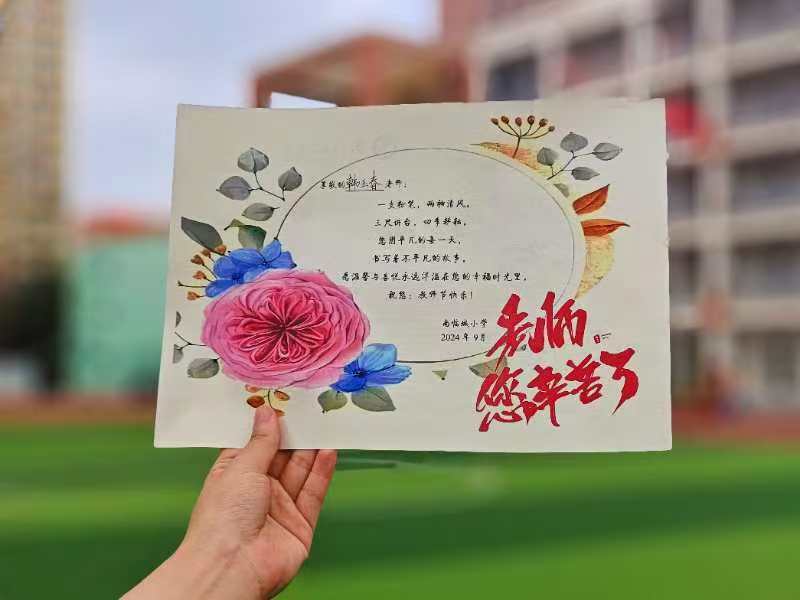 尊敬的韩立春老师：
一支粉笔，两袖清风。
三尺讲台，四季耕耘。
您用平凡的每一天，
书写着不平凡的故事。
愿温馨与喜悦永远洋溢在您的幸福时光里。
祝您：教师节快乐！
南临城小学
2024年9月
老师
您辛苦了